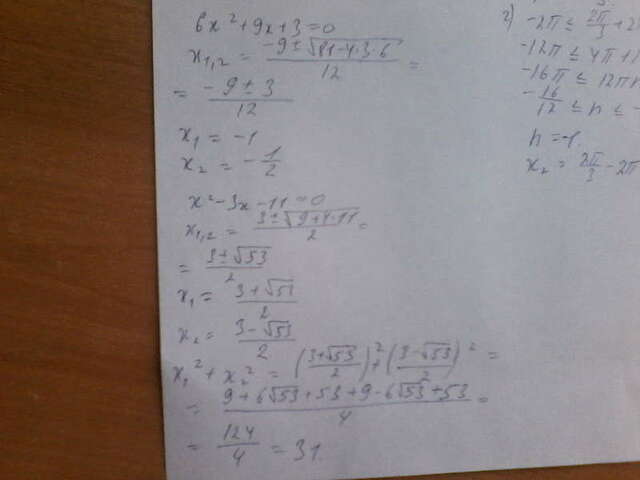 6x² + 9x + 3 = 0
x₁,₂ = (-9 ± √(81 - 4·3·6))/12 =
= (-9 ± 3)/12
x₁ = -1
x₂ = -1/2
x² - 3x - 11 = 0
x₁,₂ = (3 ± √(9 + 4·11))/2 =
= (3 ± √53)/2
x₁ = (3 + √53)/2
x₂ = (3 - √53)/2
x₁² + x₂² = ((3 + √53)/2)² + ((3 - √53)/2)² =
= (9 + 6√53 + 53 + 9 - 6√53 + 53)/4 =
= 124/4 = 31
2) -2π ≤ 2π/3 + 2π
-12π ≤ 4π + 1
-16π ≤ 12πn
-16/12 ≤ n ≤ -
n = -1.
x₂ = 2π/3 - 2π